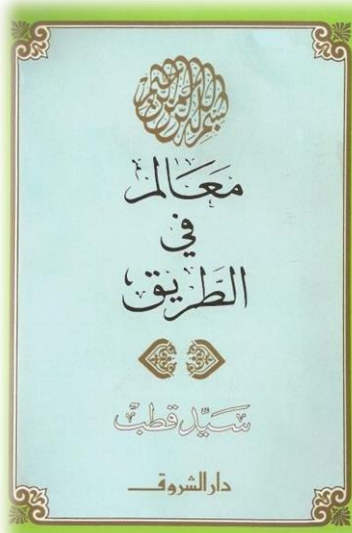 بسم الله الرحمن الرحيم
معالم
في
الطريق
سيد قطب
دار الشروق